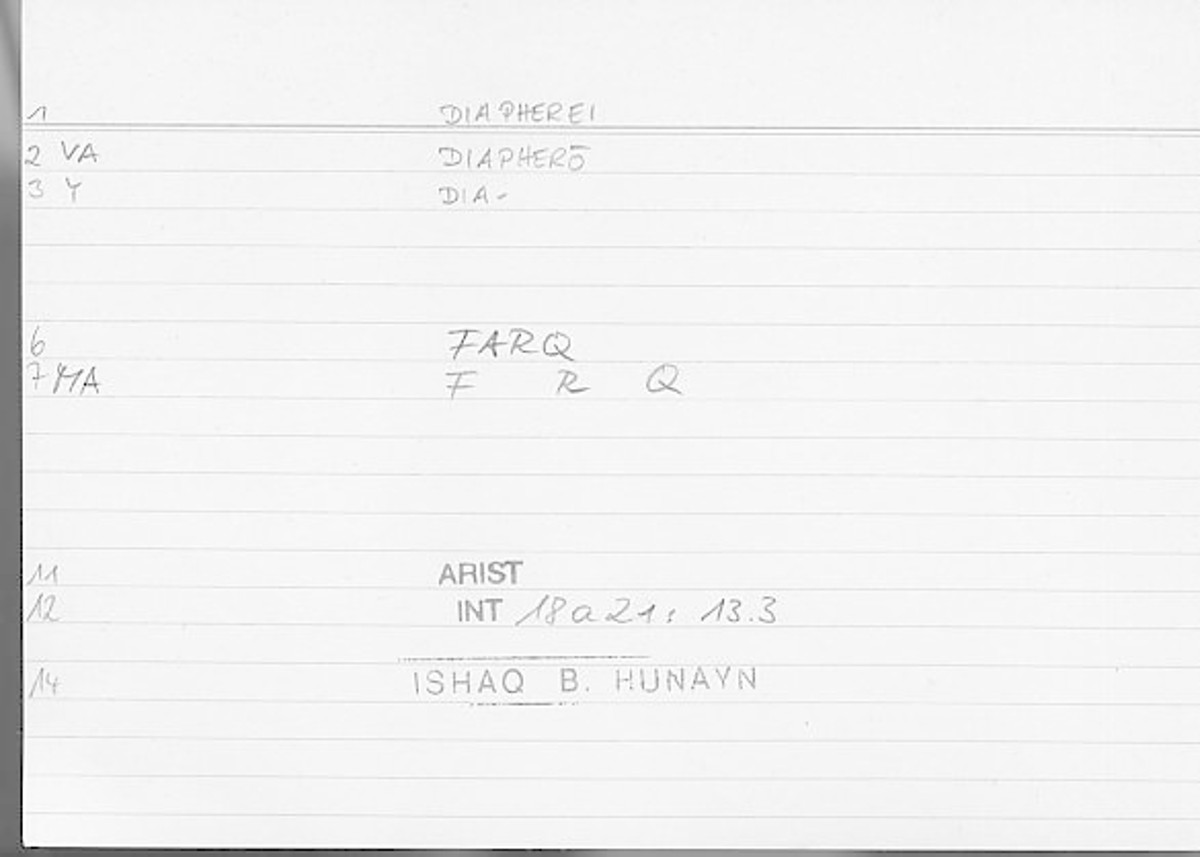 1 DIAPHEREI
2 VA DIAPHERŌ
3 Y DIA-
6 FARQ
7 MA F R Q
11 ARIST
12 INT 18a21: 13.3
14 ISHAQ B. HUNAYN